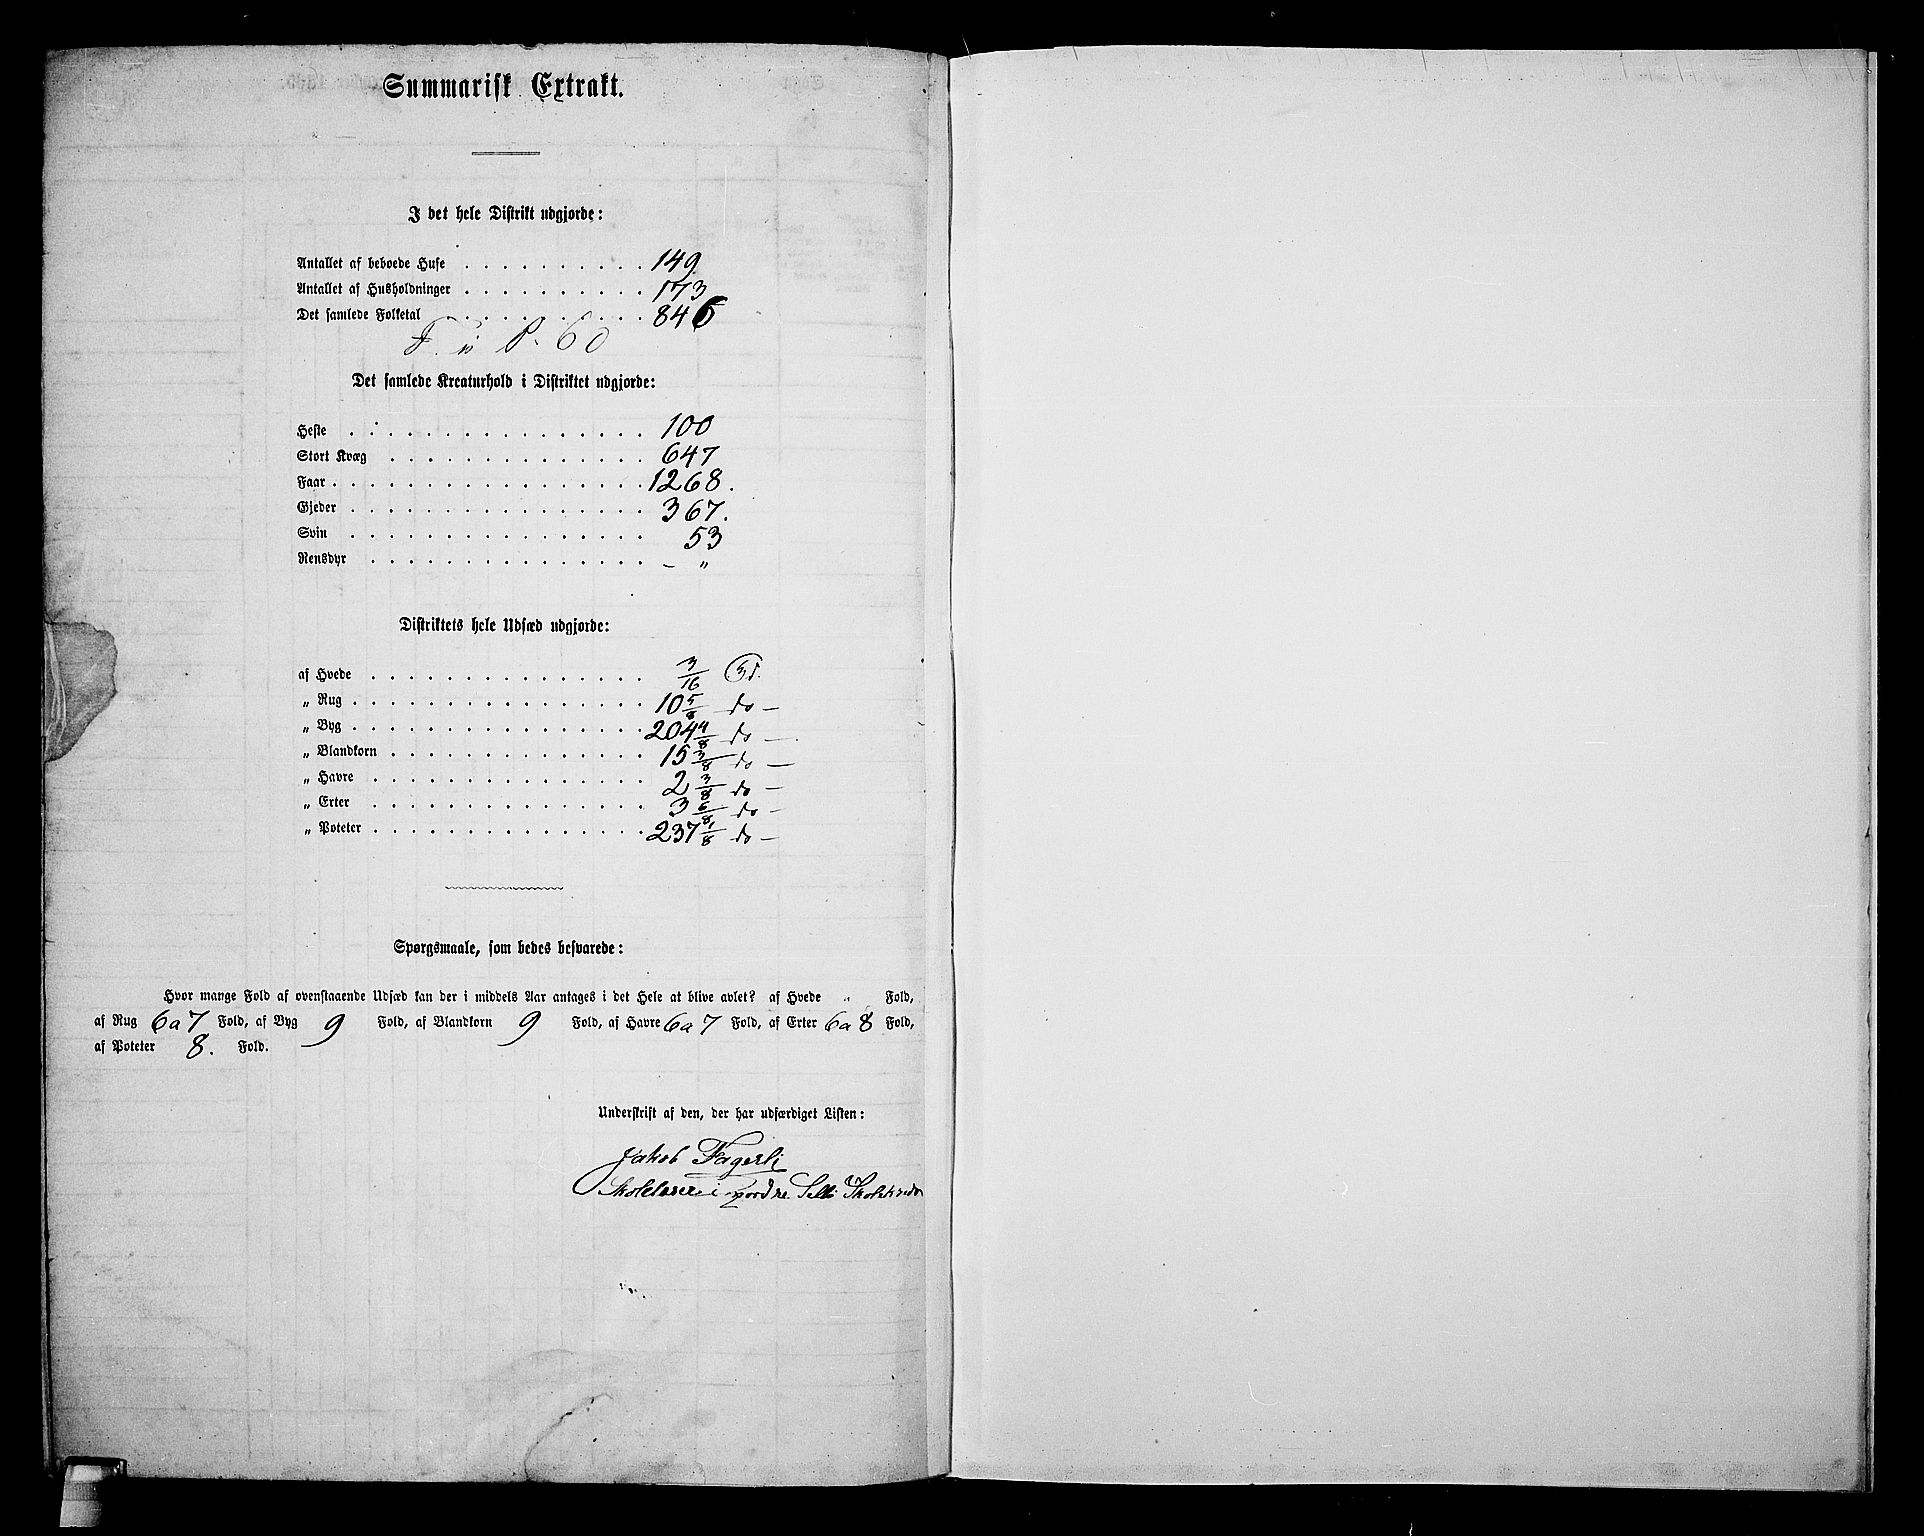 Summarisk Extrakt.
I det hele Distrikt udgjorde:
Antallet af beboede Huse . . . . . . . . . . 149.
Antallet af Husholdninger . . . . . . . . . . 173
Det samlede Folketal . . . . . . . . . . . 846
Det samlede Kreaturhold i Distriktet udgjorde:
Heste . . . . . . . . . . . . . . . . 100
Stort Kvæg . . . . . . . . . . . . . . 647
Faar . . . . . . . . . . . . . . . . . 1268.
Gjeder . . . . . . . . . . . . . . . . 367.
Svin . . . . . . . . . . . . . . . . 53
Rensdyr . . . . . . . . . . . . . . . – „
Distriktets hele Udsæd udgjorde:
af Hvede . . . . . . . . . . . . . . . 3/16
„ Rug . . . . . . . . . . . . . . . . 10 5/8 do –
„ Byg . . . . . . . . . . . . . . . . 204 4/8 do –
„ Blandkorn . . . . . . . . . . . . . . 15 3/8 do –
„ Havre . . . . . . . . . . . . . . . 2 3/8 do –
„ Erter . . . . . . . . . . . . . . . 3 6/8 do –
„ Poteter . . . . . . . . . . . . . . . 237 1/8 do –
Spørgsmaale, som bedes besvarede:
Hvor mange Fold af ovenstaaende Udsæd kan der i middels Aar antages i det Hele at blive avlet? af Hvede „ Fold,
af Rug 6 a 7 Fold, af Byg 9 Fold, af Blandkorn 9 Fold, af Havre 6 a 7 Fold, af Erter 6 a 8 Fold,
af Poteter 8. Fold.
Underskrift af den, der har udfærdiget Listen:
Jakob Fagerli
Skolelærer i nordre Sells Skolekreds